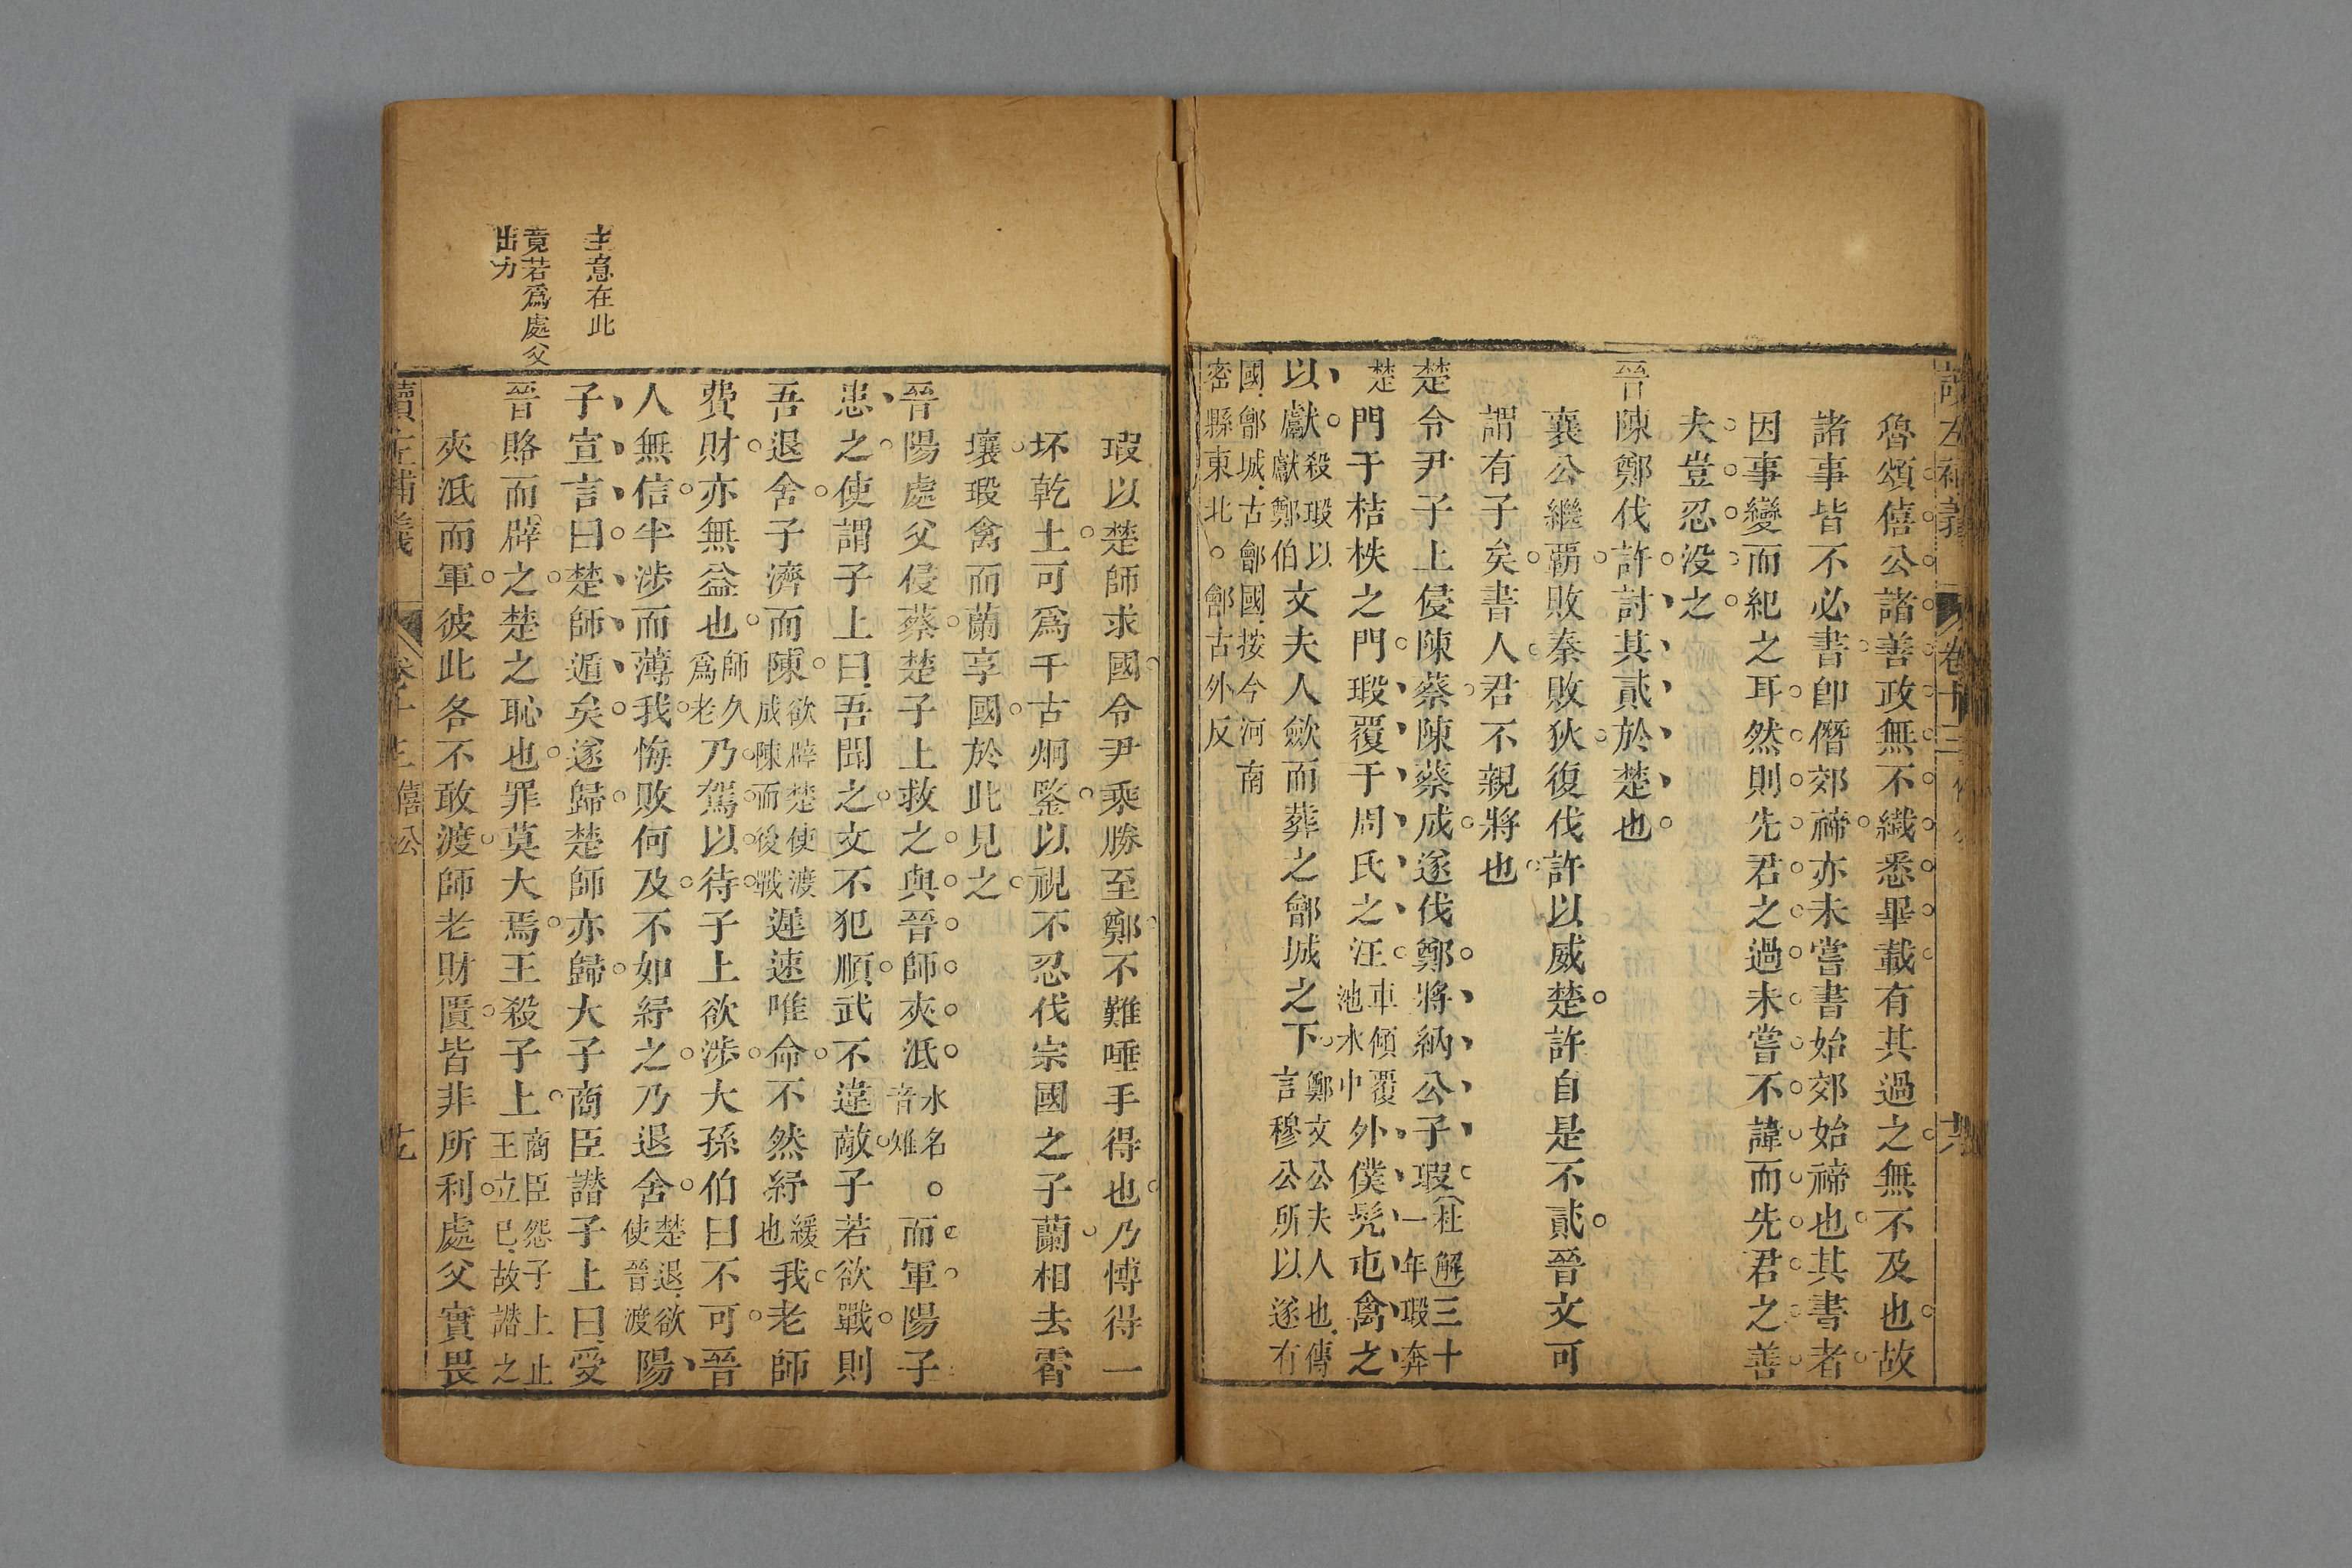 讀左補義 卷十三 僖公 六
魯頌僖公諸善政無不織悉畢載有其過之無不及也故
諸事皆不必書卽僭郊禘亦未嘗書始郊始禘也其書者
因事變而紀之耳然則先君之過未嘗不諱而先君之善
夫豈忍没之
晉陳鄭伐許討其貳於楚也
襄公繼覇敗秦敗狄復伐許以威楚許自是不貳晉文可
謂有子矣書人君不親將也
楚令尹子上侵陳蔡陳蔡成遂伐鄭將納公子瑕杜解三十一年瑕奔
楚門于桔柣之門瑕覆于周氏之汪車傾覆池水中外僕髠屯禽之
以獻殺瑕以獻鄭伯文夫人歛而葬之鄶城之下鄭文公夫人也傳言穆公所以遂有
國鄶城古鄶國按今河南密縣東北。鄶古外反
瑕以楚師求國令尹乘勝至鄭不難唾手得也乃愽得一
坏乾土可爲千古炯鑒以視不忍伐宗國之子蘭相去霄
壤瑕禽而蘭享國於此見之
晉陽處父侵蔡楚子上救之與晉師夾泜水名音雉。而軍陽子
患之使謂子上曰吾聞之文不犯順武不違敵子若欲戰則
吾退舍子濟而陳欲辟楚使渡成陳而後戰遲速唯命不然紓緩也我老師
費財亦無益也師久爲老乃駕以待子上欲涉大孫伯曰不可晉
人無信半涉而薄我悔敗何及不如紓之乃退舍楚退欲使晉渡陽
子宣言曰楚師遁矣遂歸楚師亦歸大子商臣譖子上曰受
晉賂而辟之楚之恥也罪莫大焉王殺子上商臣怨子上止王立已故譖之
夾泜而軍彼此各不敢渡師老財匱皆非所利處父實畏
讀左補義 卷十三 僖公
主意在此
竟若爲處父
出力